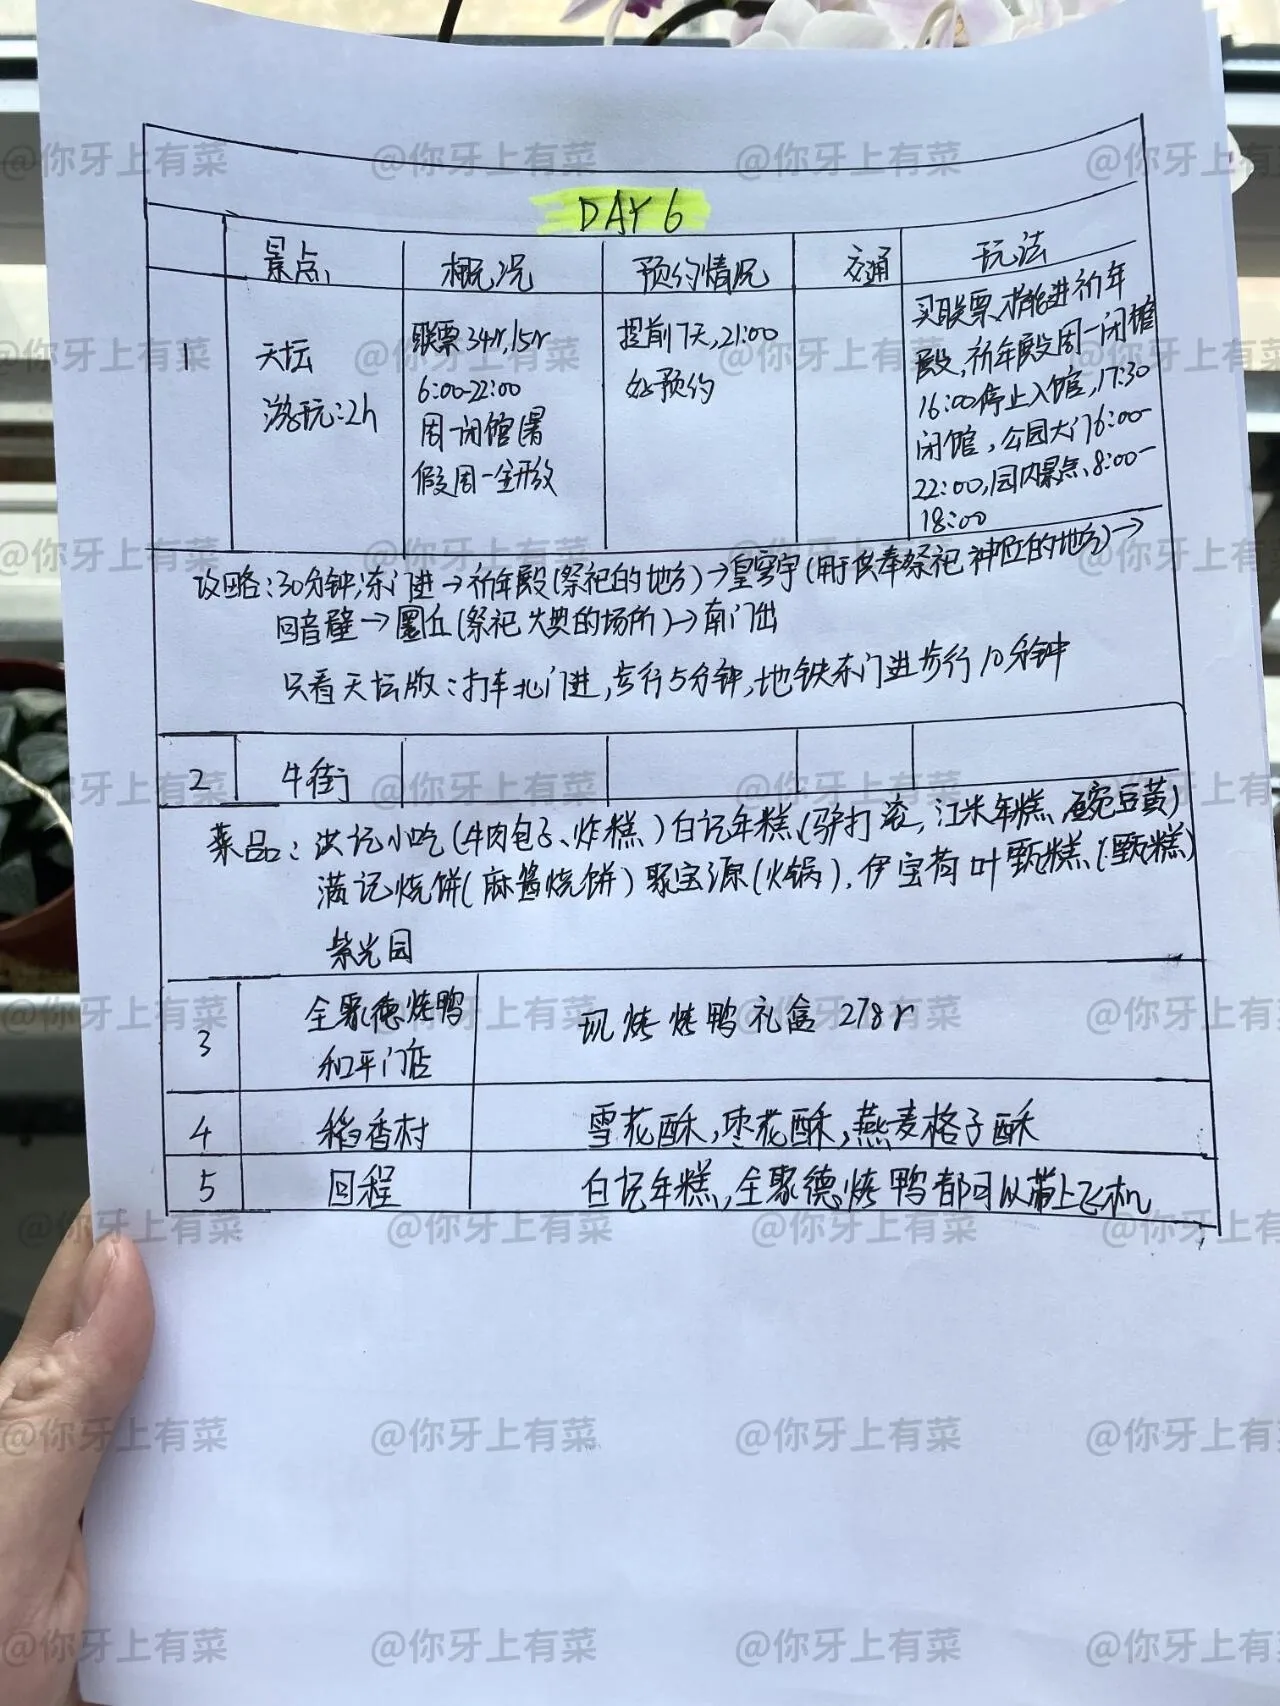 DAY 6
景点 概况 预约情况 交通 玩法
1
天坛
游玩:2h
联票34r,15r
6:00-22:00
周一闭馆(暑
假周一全开放
提前7天,21:00
始预约
买联票,才能进祈年
殿,祈年殿周一闭馆
16:00停止入馆,17:30
闭馆,公园大门6:00-
22:00,园内景点,8:00-
18:00
攻略:30分钟:东门进→祈年殿(祭祀的地方)→皇穹宇(用于供奉祭祀神位的地方)→
回音壁→圜丘(祭祀大典的场所)→南门出
只看天坛版:打车北门进,步行5分钟,地铁东门进步行10分钟
2 牛街
菜品:洪记小吃(牛肉包子、炸糕)白记年糕(驴打滚,江米年糕,豌豆黄)
满记烧饼(麻酱烧饼)聚宝源(火锅),伊宝荷叶甑糕(甑糕)
紫光园
3
全聚德烤鸭
和平门店
现烤烤鸭礼盒 278r
4 稻香村 雪花酥,枣花酥,燕麦格子酥
5 回程 白记年糕,全聚德烤鸭都可以带上飞机
@你牙上有菜